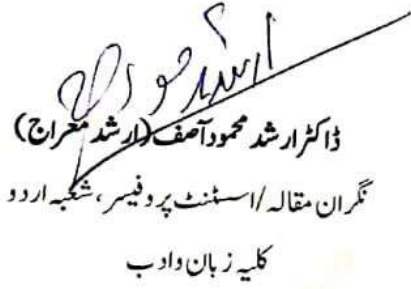 ارشد معراج
ڈاکٹر ارشد محمود آصف (ارشد معراج)
نگران مقالہ/اسسٹنٹ پروفیسر، شعبہ اردو
کلیہ زبان وادب